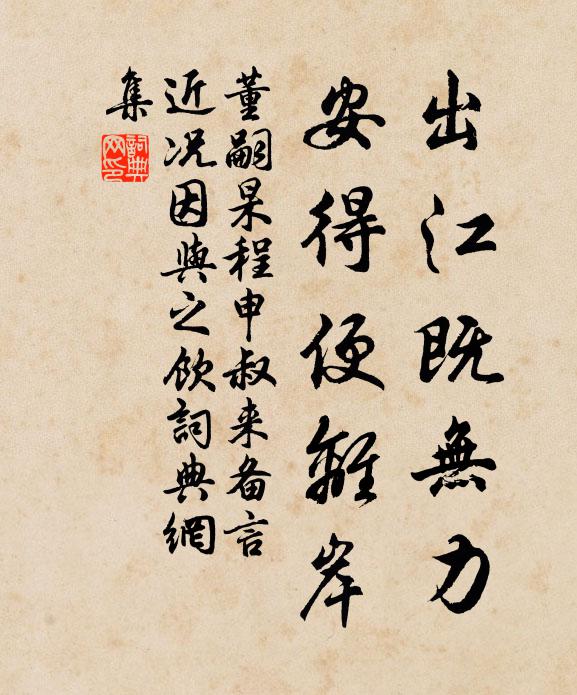 出江既無力
安得便離岸
董嗣杲程申叔来备言
近况因與之飲詞典網
集
詞典
网印